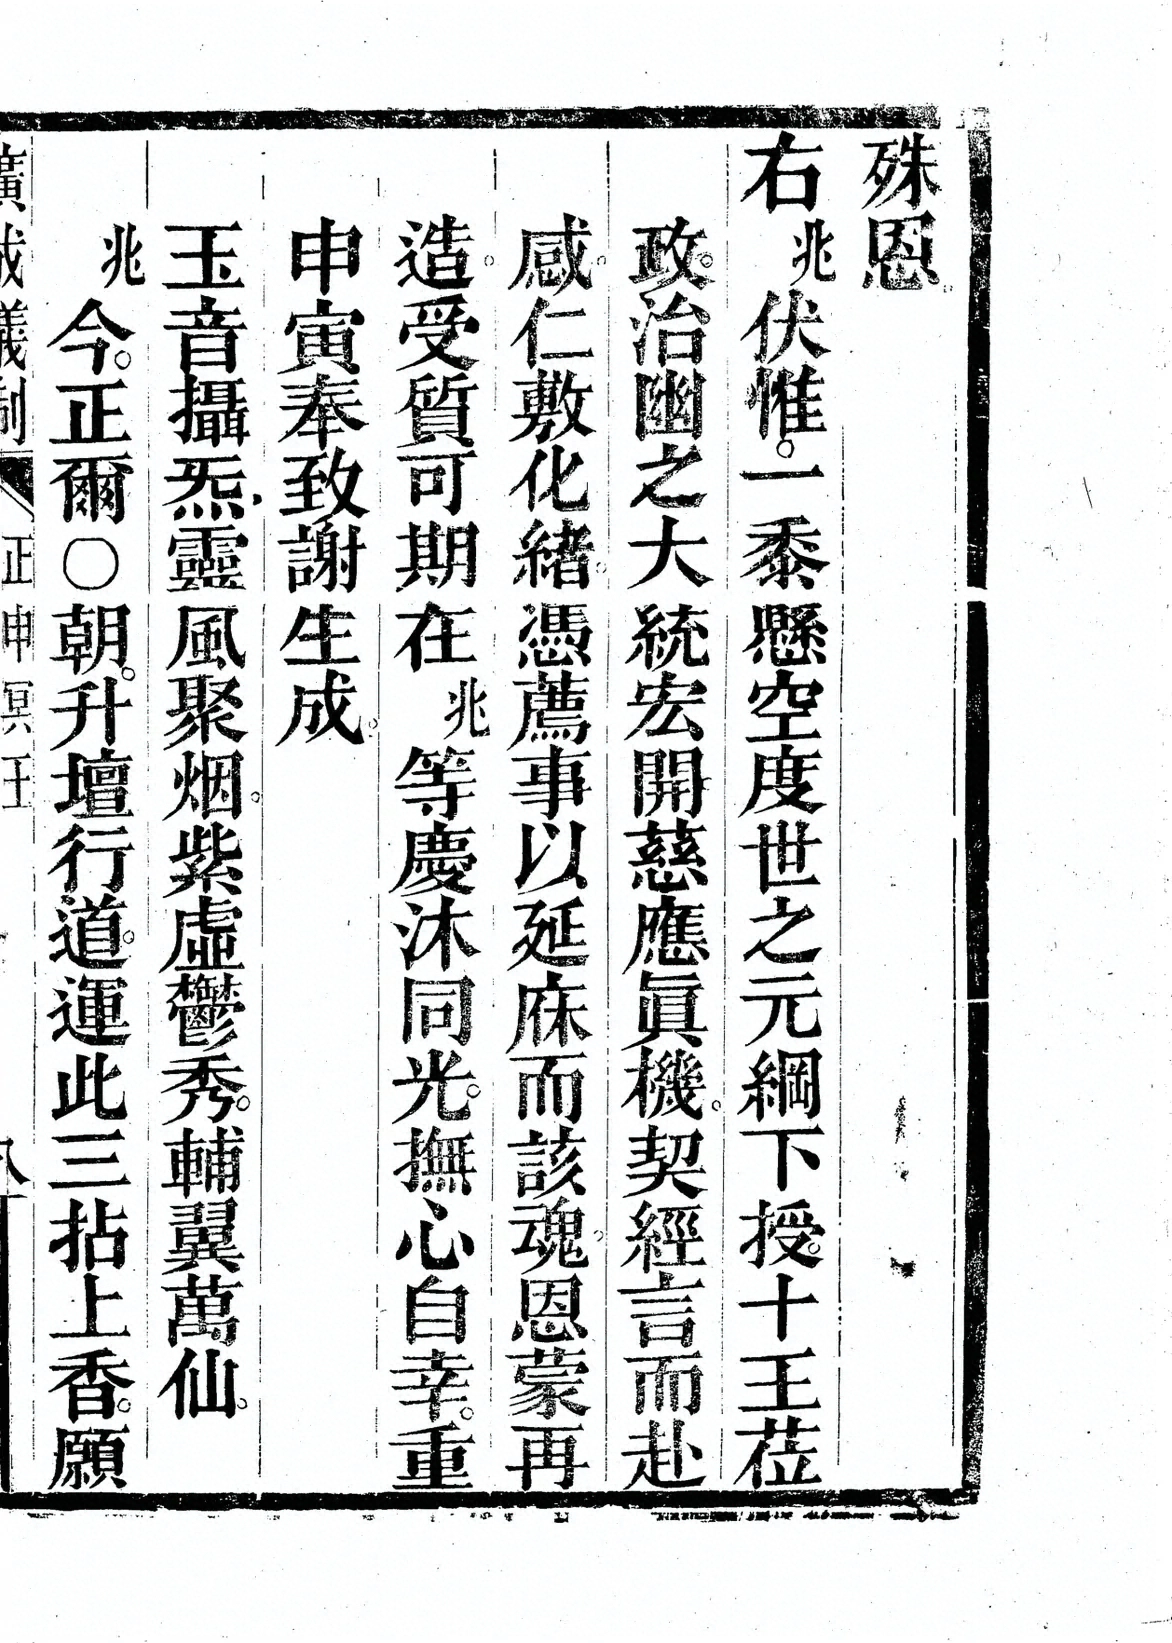 殊恩。
右兆伏惟。一黍懸空度世之元綱下授。十王莅
政。治幽之大統宏開慈應眞機。契經言而赴
感。仁敷化緒。憑薦事以延庥而該魂。恩蒙再
造。受質可期在兆等慶沐同光。撫心自幸。重
申寅奉致謝生成。
玉音攝炁靈風聚烟。紫虛鬱秀。輔翼萬仙。
兆今。正爾〇朝。升壇行道。運此三拈上香。願
廣成儀制 正申冥王 八